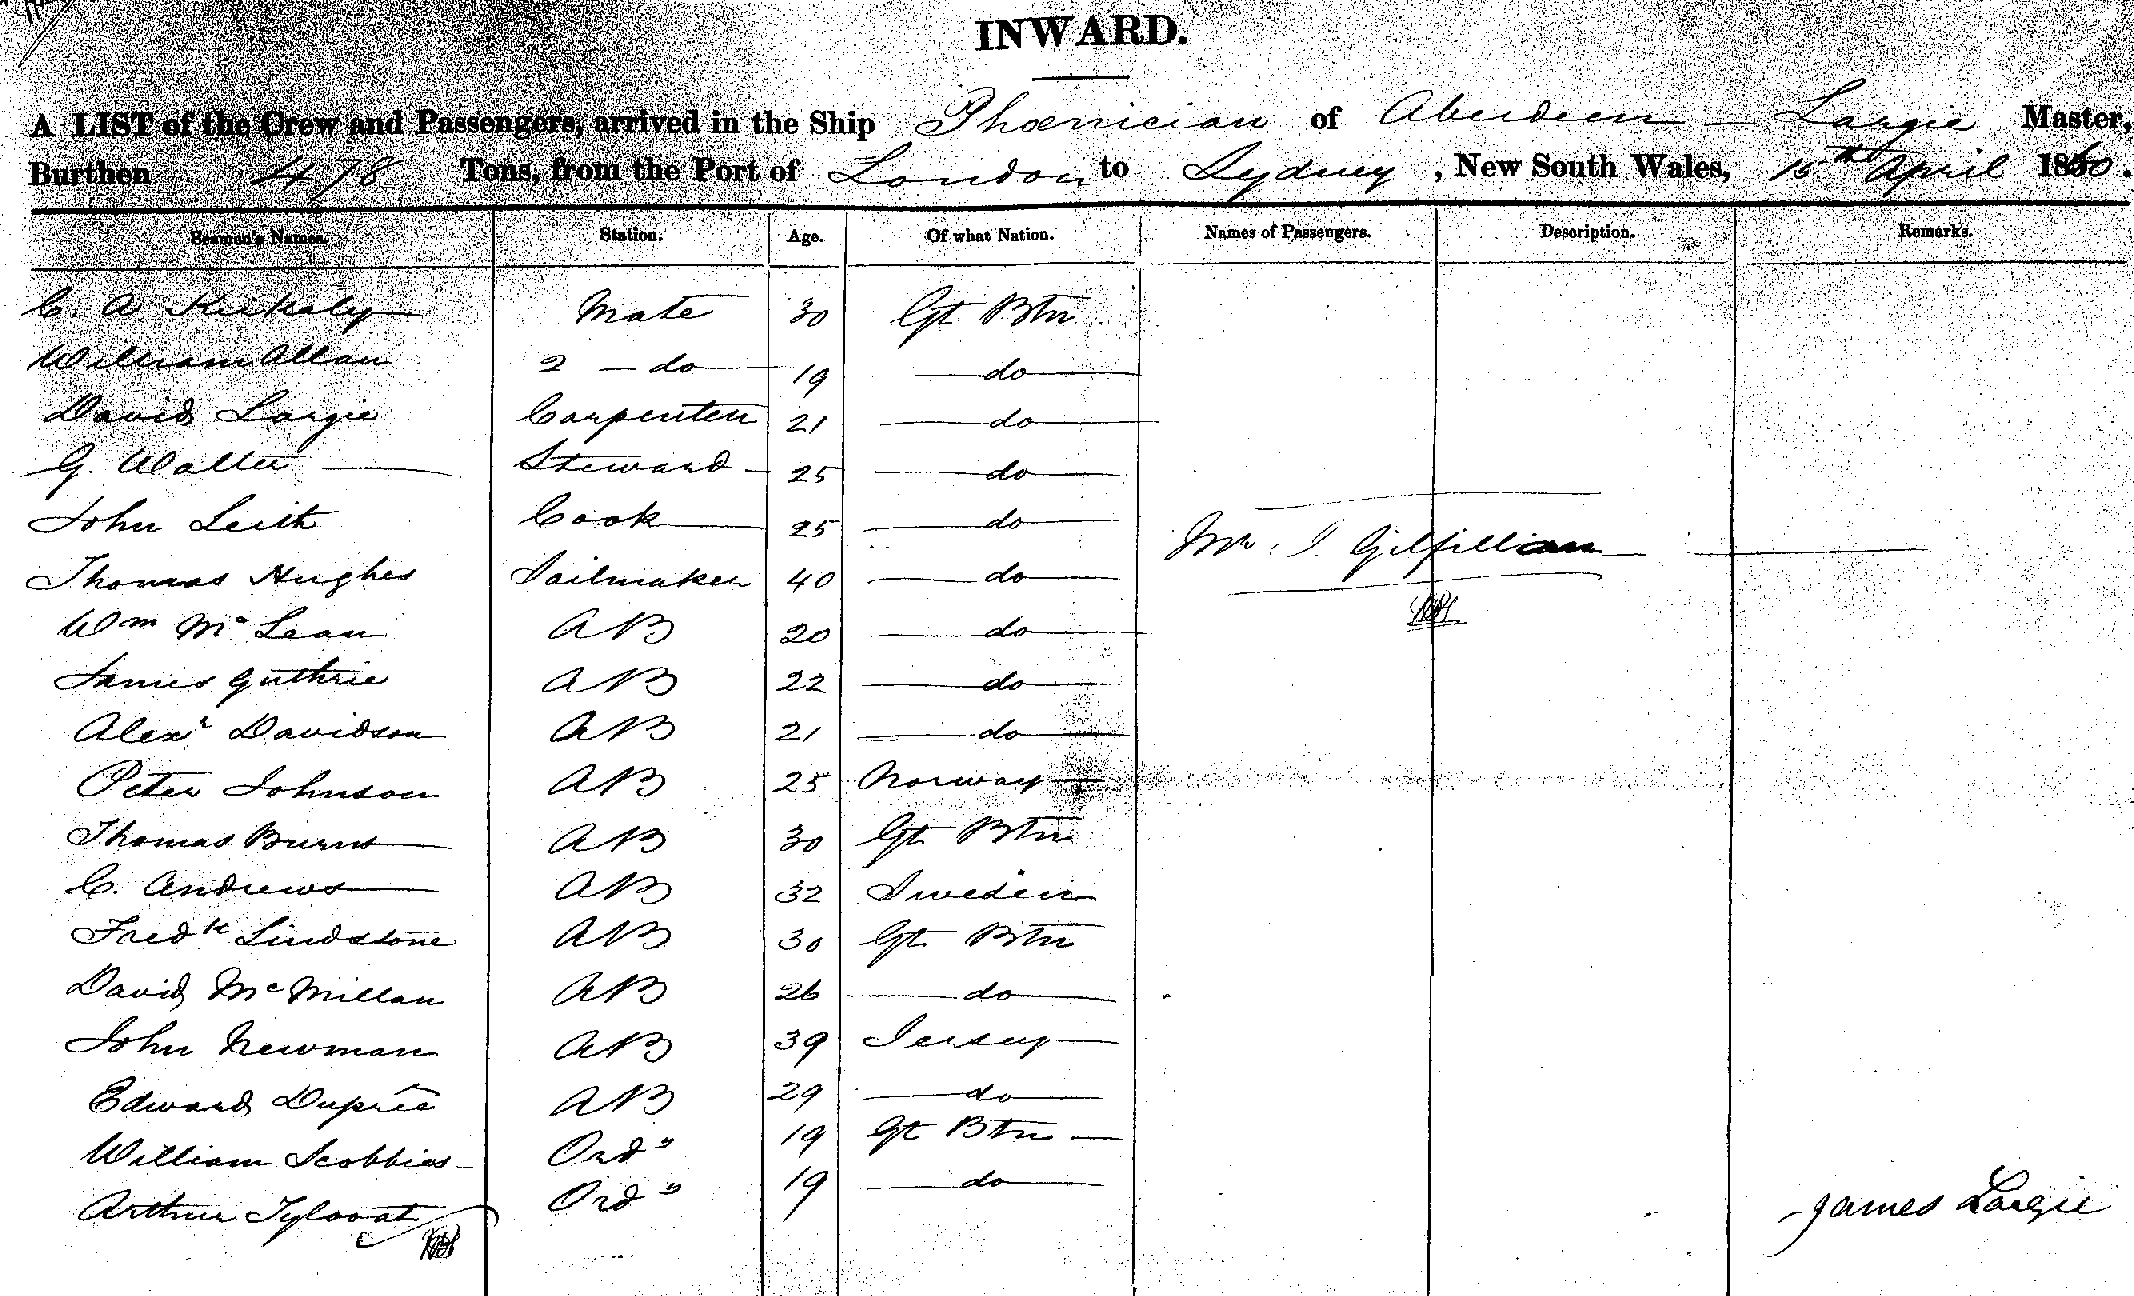 INWARD.
A LIST of the Crew and Passengers, arrived in the Ship Phoenician of Aberdeen — Largie Master,
Burthen 478 Tons, from the Port of London to Sydney, New South Wales, 15th April 1860.
Seamen's Names. Station. Age. Of what Nation. Names of Passengers. Description. Remarks.
C. A Mate 30 Gt Btn
William Allan 2 — do 19 — do —
David Largie Carpenter 21 — do —
G. Walter Steward 25 — do —
John Leith Cook 25 — do —
Mr. J. Gilfillian
Thomas Hughes Sailmaker 40 — do —
Wm McLean AB 20 — do —
James Guthrie AB 22 — do —
Alexr Davidson AB 21 — do —
Peter Johnson AB 25 Norway
Thomas Burns AB 30 Gt Btn
C. Andrews AB 32 Sweden
Fredk Lindstone AB 30 Gt Btn
David McMillan AB 26 — do —
John Newman AB 39 Jersey
Edward Dupree AB 29 — do —
William Scobbias Ord " 19 Gt Btn
Arthur Ord " 19 — do —
James Largie